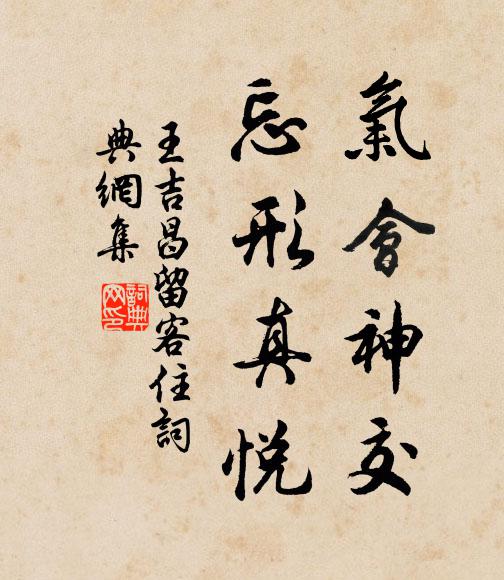 氣會神交
忘形真悦
王吉昌留客住詞
典網集
詞典
网印